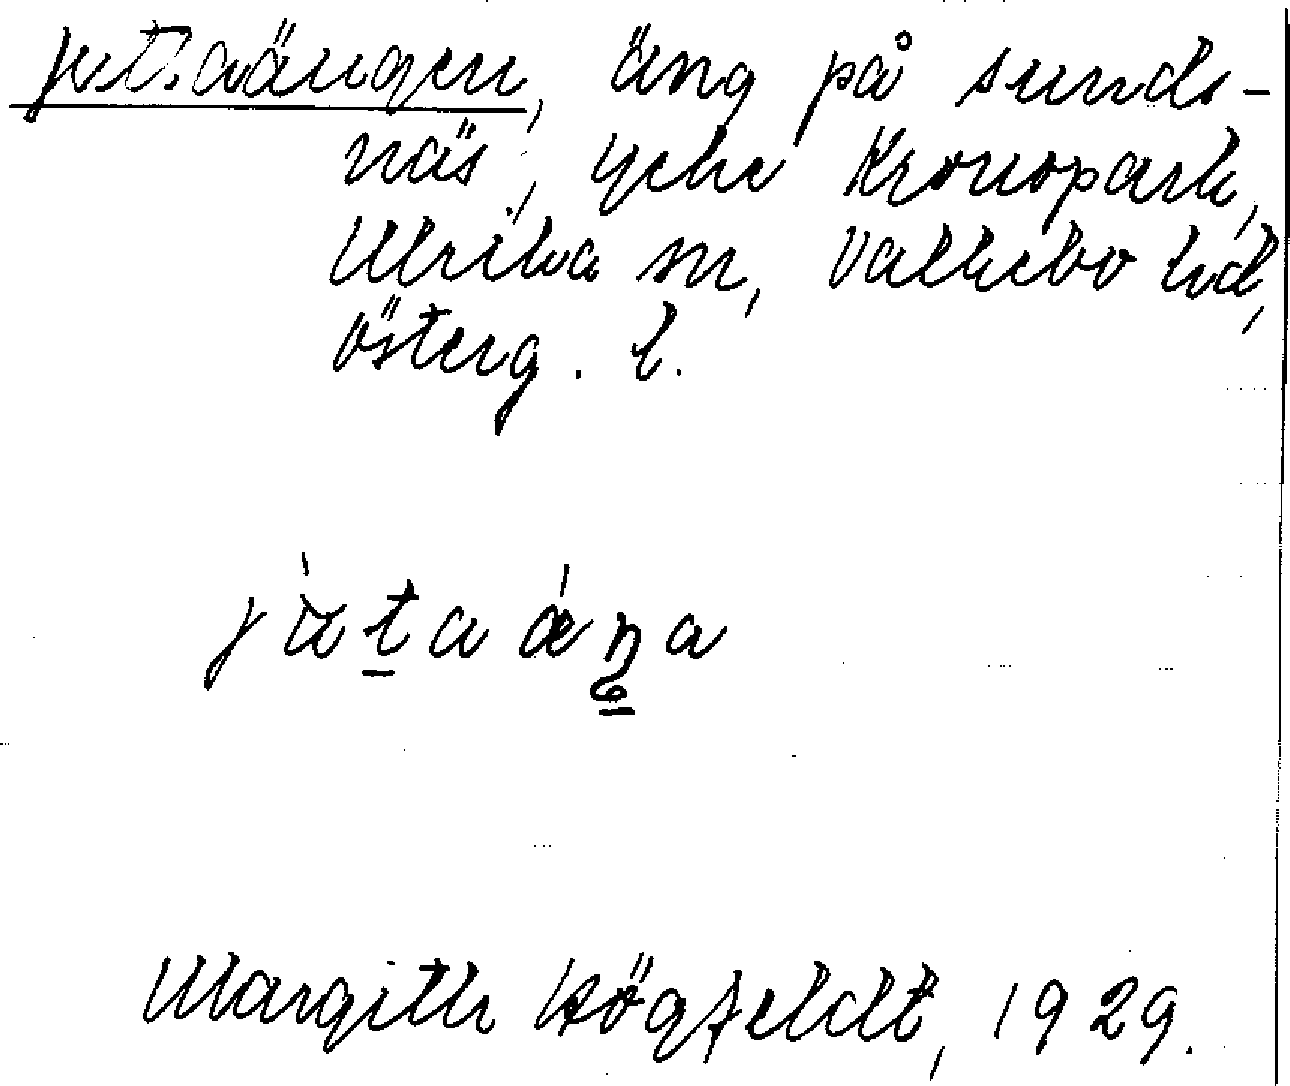 Juttaängen, äng på Sunds-
näs, Ycke Kronopark,
Ulrika sn, Valkebo hd,
Österg. l.
Margith Högfeldt, 1929.